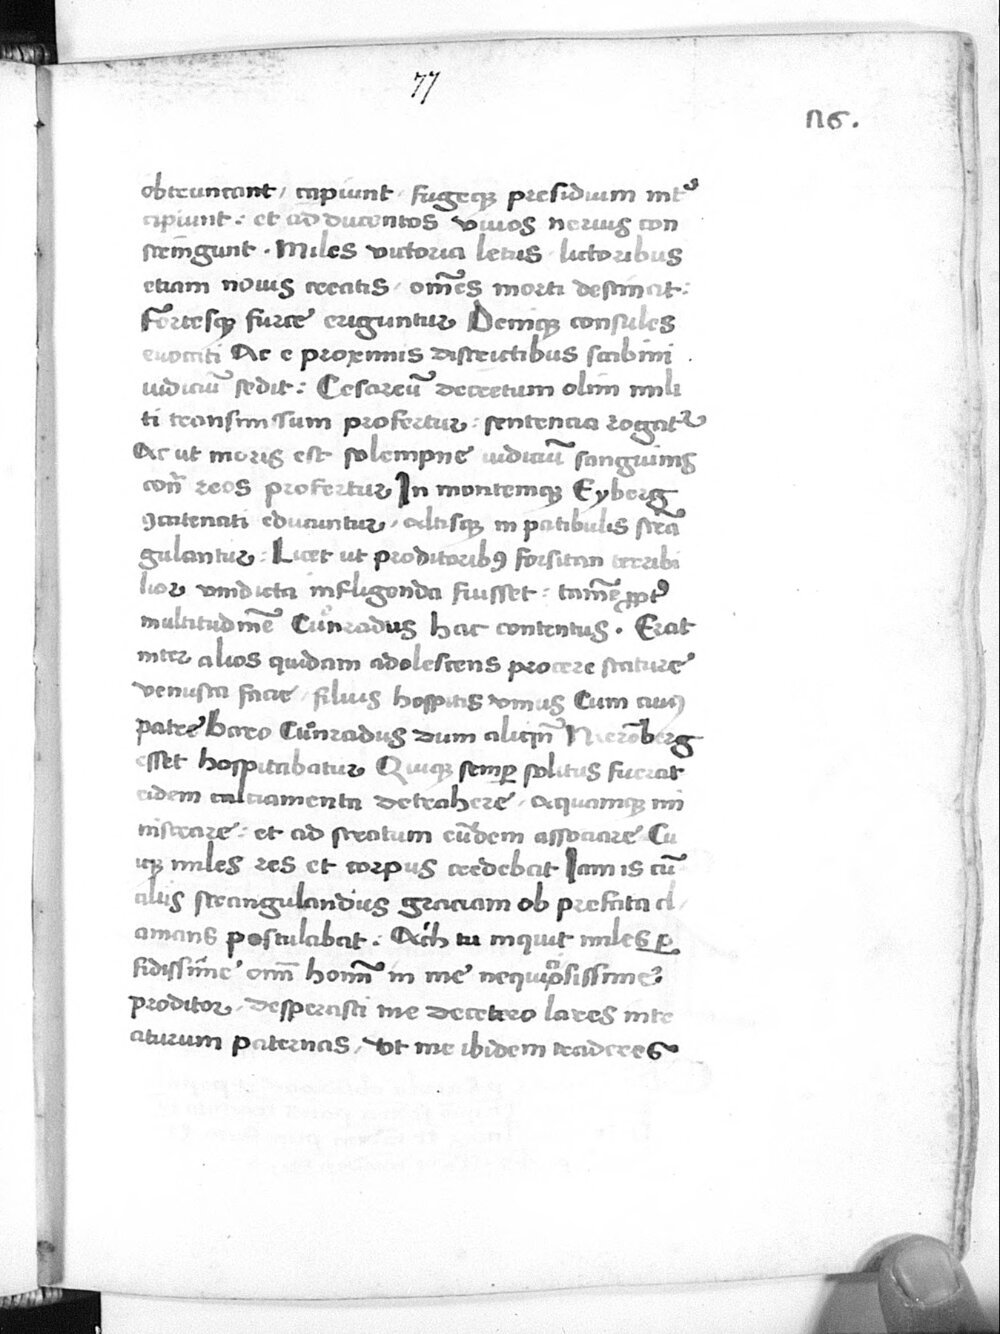 77
116.
obtruncant / capiunt / fugeq; presidium int᷒
cipiunt : et ad ducentos viuos neruis con
stringunt . Miles victoria letus lictoribus
etiam nouis creatis / om̄es morti destinat :
fortesq; furce eriguntur Deniq; consules
euocati Ac e proximis districtibus scabini .
iudiciū sedit : Cesareū decretum olim mili
ti transmissum profertur : sentencia rogatr
Ac ut moris est solempne iudiciū sanguinis
con̄ reos profertur In montemq; Eyberg
ꝯcatenati educuntur / altisq; in patibulis strā
gulantur : Licet ut proditoribꝰ forsitan terribi
lior vindicta infligenda fuisset : tamē ꝓpt᷒
multitudinē Cůnradus hac contentus . Erat
inter alios quidam adolescens procere stature
venusta facie / filius hospitis vnius Cum cuiꝰ
patre baro Cůnradus dum aliqn̄ Nierēberg
esset hospitabatur Quiq; semꝑ solitus fuerat
eidem calciamenta detrahere / aquamq; mi
nistrare : et ad stratum eūdem associare Cu
iq; miles res et corpus credebat Iam is cū
aliis strangulandus graciam ob prefata cl
amans postulabat : Ach tu inquit miles ꝑ
fidissime om̄ homī in me nequiosissime
proditor / desperasti me decetero lares intr
aturum paternas / vt me ibidem traderes